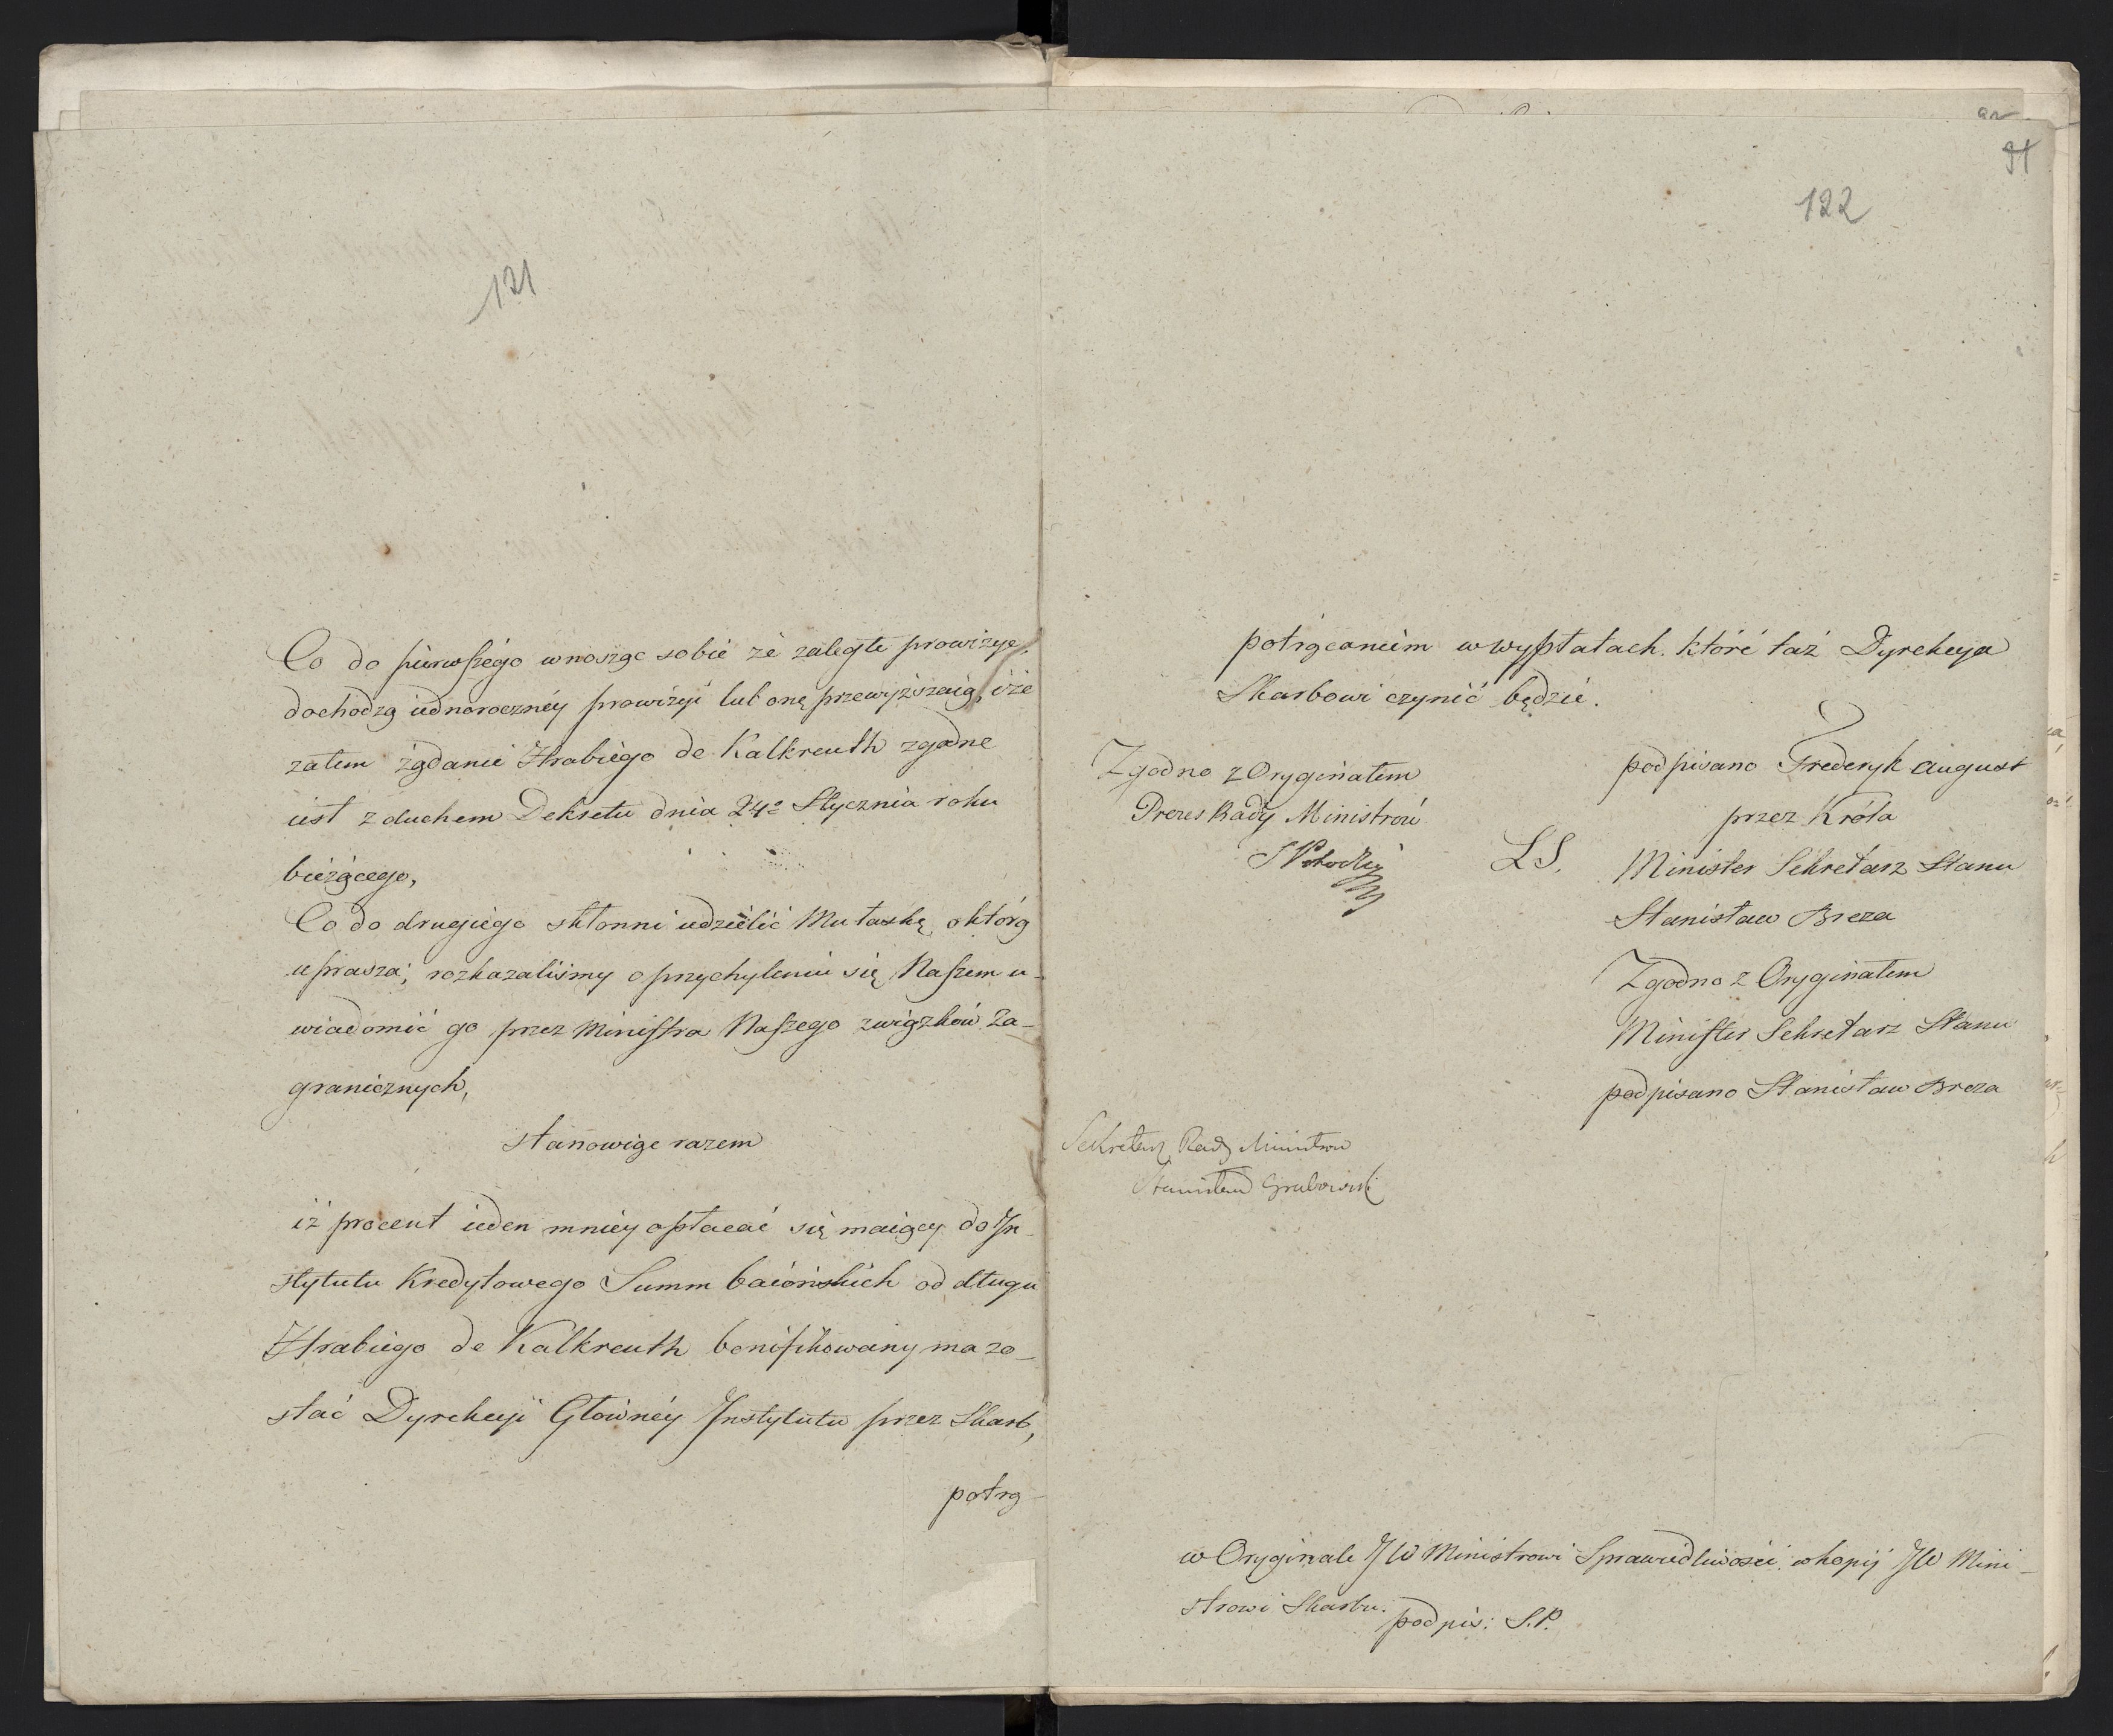 121
Co do pierwszego wnosząc sobie że zaległe prowizye
dochodzą iednoroczney prowizyi lub onę przewyższaią, i że
zatem żądanie Hrabiego de Kalkreuth zgodne
iest z duchem Dekretu dnia 24º Stycznia roku
bieżącego,
Co do drugiego skłonni udzielić Mu łaskę o którą
uprasza; rozkazaliśmy o przychyleniu się Naszem u-
wiadomić go przez Ministra Naszego związków Za-
granicznych,
stanowiąc razem
iż procent ieden mniey opłacać się maiący do In-
stytutu Kredytowego Summ baiońskich od długu
Hrabiego de Kalkreuth bonifikowany ma zo-
stać Dyrekcyi Główney Instytutu przez Skarb,
potrą-
91
122
potrąceniem w wypłatach które taż Dyrekcya
Skarbowi czynić będzie.
podpisano Frederyk August
przez Króla
Minister Sekretarz Stanu
Stanisław Breza
Zgodno z Oryginałem
Minister Sekretarz Stanu
podpisano Stanisław Breza
L.S.
Zgodno z Oryginałem
Prezes Rady Ministrów
S Potocki
Sekretarz Rady Ministrow
Stanisław Grabowski
w Oryginale JW Ministrowi Sprawiedliwości w kopij JW Mini-
strowi Skarbu.
podpis: S.P.